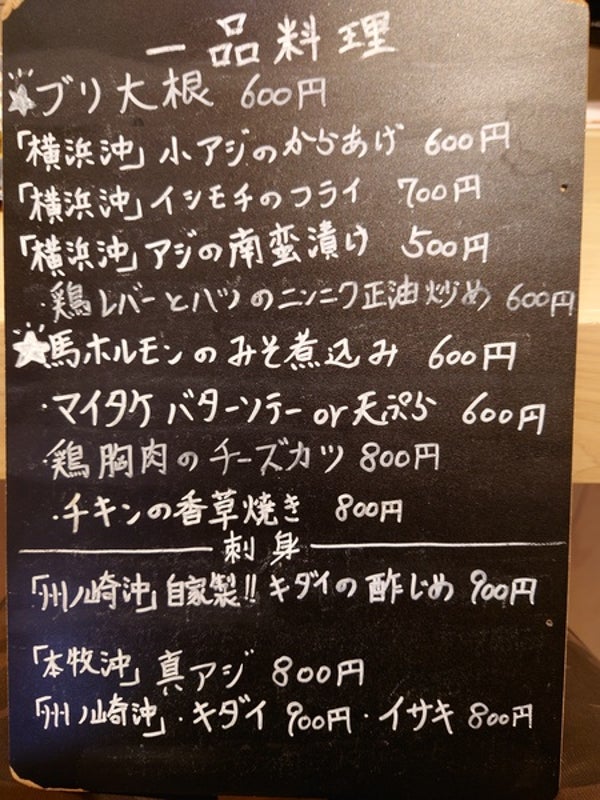 一品料理
★ブリ大根 600円
「横浜沖」小アジのからあげ 600円
「横浜沖」イシモチのフライ 700円
「横浜沖」アジの南蛮漬け 500円
・鶏レバーとハツのニンニク正油炒め 600円
★馬ホルモンのみそ煮込み 600円
・マイタケバターソテーor天ぷら 600円
・鶏胸肉のチーズカツ 800円
・チキンの香草焼き 800円
刺身
「州ノ崎沖」自家製!!キダイの酢じめ 900円
「本牧沖」真アジ 800円
「州ノ崎沖」・キダイ 900円・イサキ 800円